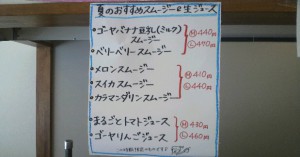 夏のおすすめスムージー&生ジュース
•ゴーヤバナナ豆乳(ミルク)
スムージー
•ベリーベリースムージー
Ⓜ440円
Ⓛ490円
•メロンスムージー
•スイカスムージー
•カラマンダリンスムージー
Ⓜ410円
Ⓛ440円
•まるごとトマトジュース
•ゴーヤりんごジュース
Ⓜ430円
Ⓛ460円